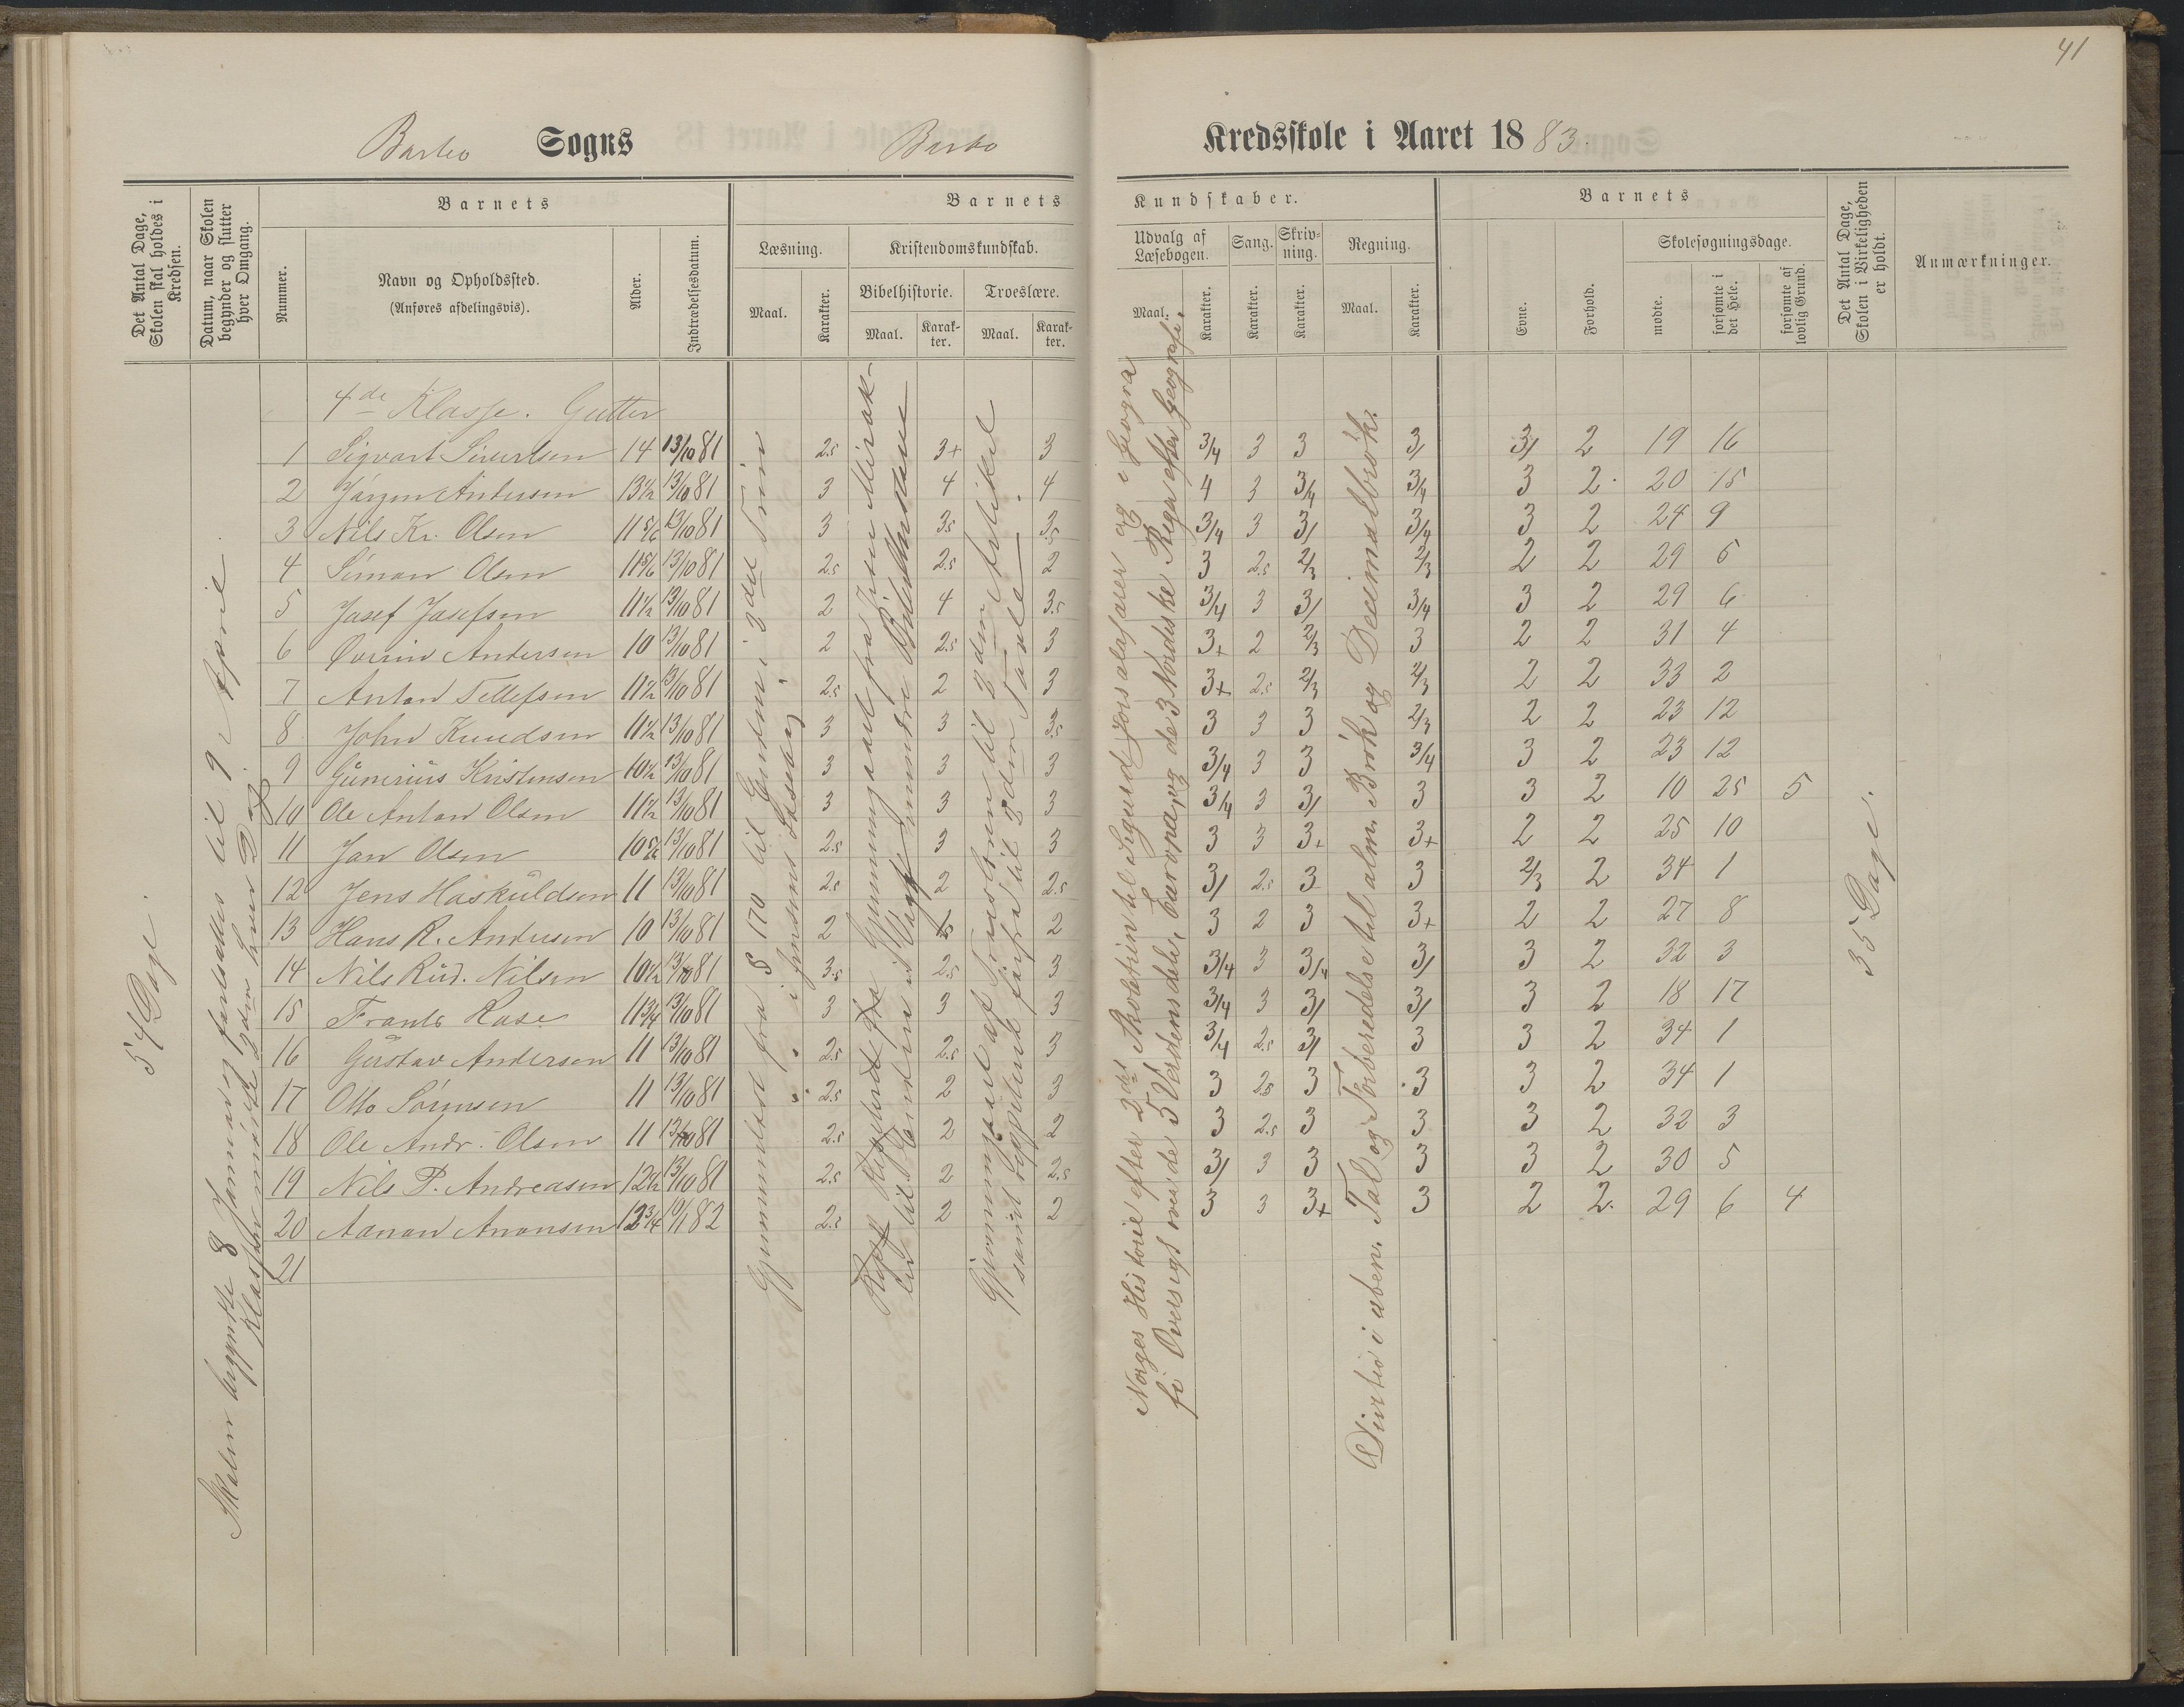 41
Barbo Sogns Barbo Kredsskole i Aaret 1883.
Det Antal Dage, Skolen skal holdes i Kredsen.
Datum, naar Skolen begynder og slutter hver Omgang.
Barnets
Nummer.
Navn og Opholdssted.
(Anføres afdelingsvis).
Alder.
Indtrædelsesdatum.
Barnets Kundskaber.
Læsning.
Maal.
Karakter.
Kristendomskundskab.
Bibelhistorie.
Maal.
Karakter.
Troeslære.
Maal.
Karakter.
Udvalg af Læsebogen.
Maal.
Karakter.
Sang.
Karakter.
Skrivning.
Karakter.
Regning.
Maal.
Karakter.
Barnets
Evne.
Forhold.
Skolesøgningsdage.
mødte.
forsømte i det Hele.
forsømte af lovlig Grund.
Det Antal Dage, Skolen i Virkeligheden er holdt.
Anmærkninger.
54 Dage.
Skolen begyndte 8 Januar og fortsattes til 9 April.
Klassen mødte 2den hver Dag
4de Klasse. Gutter
1 Sigvart Sivertsen 14 13/10 81 2.5 3+ 3 3/4 3 3 3/ 3/ 2 19 16
2 Jørgen Andersen 13½ 13/10 81 3 4 4 4 3 3/4 3/4 3 2 20 15
3 Nils Kr. Olsen 11 5/6 13/10 81 3 3.5 3.5 3/4 3 3/ 3/4 3 2 24 9
4 Simon Olsen 11 5/6 13/10 81 2.5 2.5 2 3 2.5 2/3 2/3 2 2 29 6
5 Josef Josefsen 11½ 13/10 81 2 4 3.5 3/4 3 3/ 3/4 3 2 29 6
6 Øvrin Andersen 10 13/10 81 2 2.5 3 3+ 2 2/3 3 2 2 31 4
7 Anton Tellefsen 11½ 13/10 81 2.5 2 3 3+ 2.5 2/3 2/3 2 2 33 2
8 John Knudsen 11½ 13/10 81 3 3 3.5 3 3 3 2/3 2 2 23 12
9 Gunerius Kristensen 10½ 13/10 81 3 3 3 3/4 3 3 3/4 3 2 23 12
10 Ole Anton Olsen 11½ 13/10 81 3 3 3 3/4 3 3/ 3 3 2 10 25 5
11 Jan Olsen 10 5/6 13/10 81 2.5 3 3 3 3 3+ 3+ 2 2 25 10
12 Jens Haskuldsen 11 13/10 81 2.5 2 2.5 3/ 2.5 3 3 2/3 2 34 1
13 Hans R. Andersen 10 13/10 81 2 2 3 2 3 3+ 2 2 27 8
14 Nils Rud. Nilsen 10½ 13/10 81 3.5 2.5 3 3/4 3 3/4 3/ 3 2 32 3
15 Frants Rase 11 3/4 13/10 81 3 3 3 3/4 3 3/ 3/ 3 2 18 17
16 Gustav Andersen 11 13/10 81 2.5 2.5 3 3/4 2.5 3/ 3 3 2 34 1
17 Otto Sørensen 11 13/10 81 2.5 2 3 3 2.5 3 3 3 2 34 1
18 Ole Andr. Olsen 11 13/10 81 2.5 2 2 3 2.5 3 3 3 2 32 3
19 Nils P. Andreasen 12½ 13/10 81 2.5 2 2.5 3/ 3 3 3 3 2 30 5
20 Aanon Anonsen 12 3/4 10/1 82 2.5 2 2 3 3 3+ 3 2 2 29 6 4
21
Gjennemlæst fra § 170 til Enden i 3die Trin
i Jensens Læsebog
Gjennemgaaet fra Jesu Mirak-
ler til Enden i Vogts mindre Bibelhistorie
Gjennemgaaet af Troeslæren til 3dien Artikel
samt repeteret forfra til 2den Tavle.
Norges Historie efter 2det Skoletrin til Sigurd Jorsalafarer og i Geogra
fi Oversigt over de 5 Verdensdele, Europa, og de 3 Nordiske Riger efter Geografi.
Divisio i uben. Tal og Forberedelse til alm. Brøk og Decimalbrøk.
35 Dage.